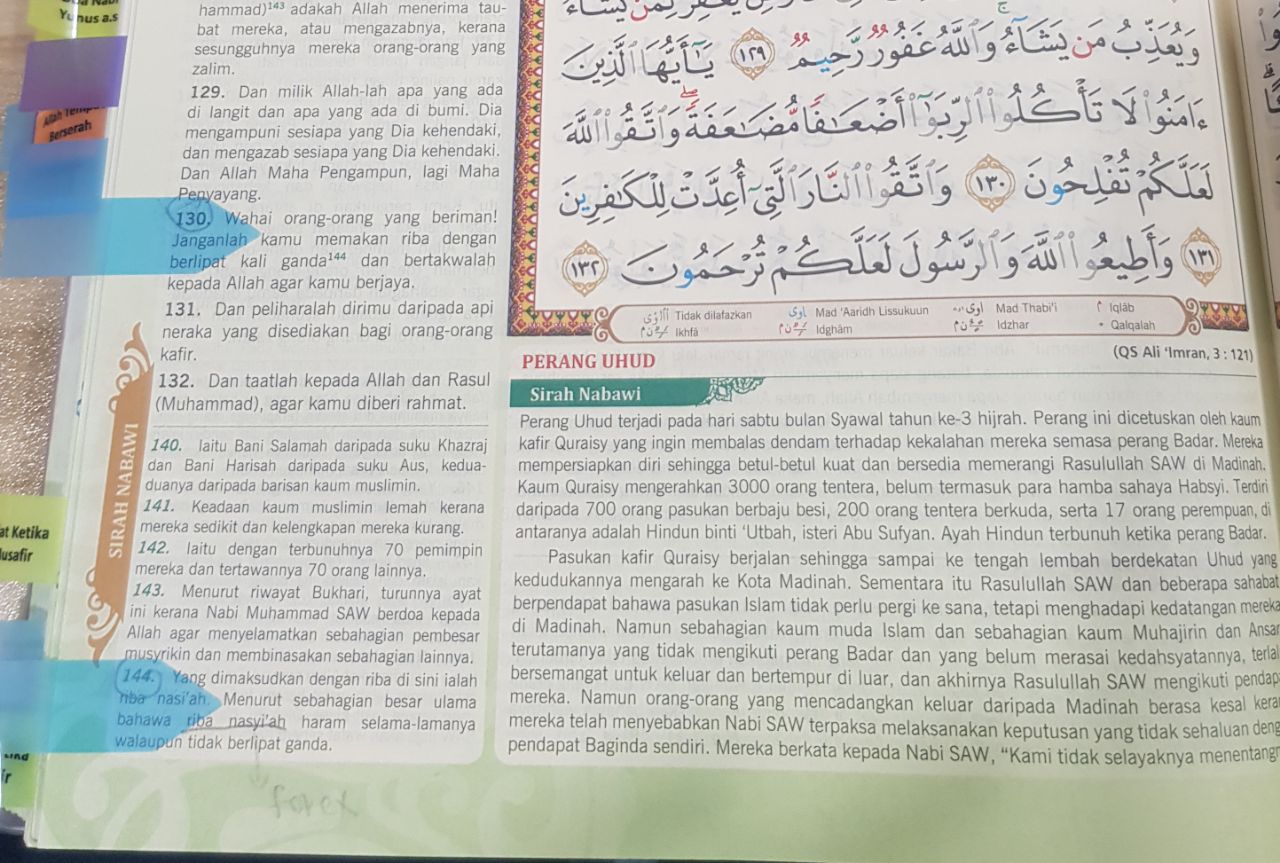 Yunus a.s
Allah Tempat
Berserah
at Ketika
usafir
hammad)143 adakah Allah menerima tau-
bat mereka, atau mengazabnya, kerana
sesungguhnya mereka orang-orang yang
zalim.
129. Dan milik Allah-lah apa yang ada
di langit dan apa yang ada di bumi. Dia
mengampuni sesiapa yang Dia kehendaki,
dan mengazab sesiapa yang Dia kehendaki.
Dan Allah Maha Pengampun, lagi Maha
Penyayang.
130. Wahai orang-orang yang beriman!
Janganlah kamu memakan riba dengan
berlipat kali ganda144 dan bertakwalah
kepada Allah agar kamu berjaya.
131. Dan peliharalah dirimu daripada api
neraka yang disediakan bagi orang-orang
kafir.
132. Dan taatlah kepada Allah dan Rasul
(Muhammad), agar kamu diberi rahmat.
SIRAH NABAWI
140. Iaitu Bani Salamah daripada suku Khazraj
dan Bani Harisah daripada suku Aus, kedua-
duanya daripada barisan kaum muslimin.
141. Keadaan kaum muslimin lemah kerana
mereka sedikit dan kelengkapan mereka kurang.
142. Iaitu dengan terbunuhnya 70 pemimpin
mereka dan tertawannya 70 orang lainnya.
143. Menurut riwayat Bukhari, turunnya ayat
ini kerana Nabi Muhammad SAW berdoa kepada
Allah agar menyelamatkan sebahagian pembesar
musyrikin dan membinasakan sebahagian lainnya.
144. Yang dimaksudkan dengan riba di sini ialah
riba nasi'ah. Menurut sebahagian besar ulama
bahawa riba nasyi'ah haram selama-lamanya
walaupun tidak berlipat ganda.
forex
وَيُعَذِّبُ مَن يَشَآءُ وَٱللَّهُ غَفُورٌ رَّحِيمٌ ١٢٩ يَٰٓأَيُّهَا ٱلَّذِينَ
ءَامَنُوا۟ لَا تَأْكُلُوا۟ ٱلرِّبَوٰٓا۟ أَضْعَٰفًا مُّضَٰعَفَةً وَٱتَّقُوا۟ ٱللَّهَ
لَعَلَّكُمْ تُفْلِحُونَ ١٣٠ وَٱتَّقُوا۟ ٱلنَّارَ ٱلَّتِىٓ أُعِدَّتْ لِلْكَٰفِرِينَ
١٣١ وَأَطِيعُوا۟ ٱللَّهَ وَٱلرَّسُولَ لَعَلَّكُمْ تُرْحَمُونَ ١٣٢
Tidak dilafazkan Mad 'Aaridh Lissukuun Mad Thabi'i Iqlāb
Ikhfā Idghām Idzhar Qalqalah
PERANG UHUD (QS Ali 'Imran, 3 : 121)
Sirah Nabawi
Perang Uhud terjadi pada hari sabtu bulan Syawal tahun ke-3 hijrah. Perang ini dicetuskan oleh kaum
kafir Quraisy yang ingin membalas dendam terhadap kekalahan mereka semasa perang Badar. Mereka
mempersiapkan diri sehingga betul-betul kuat dan bersedia memerangi Rasulullah SAW di Madinah.
Kaum Quraisy mengerahkan 3000 orang tentera, belum termasuk para hamba sahaya Habsyi. Terdiri
daripada 700 orang pasukan berbaju besi, 200 orang tentera berkuda, serta 17 orang perempuan, di
antaranya adalah Hindun binti 'Utbah, isteri Abu Sufyan. Ayah Hindun terbunuh ketika perang Badar.
Pasukan kafir Quraisy berjalan sehingga sampai ke tengah lembah berdekatan Uhud yang
kedudukannya mengarah ke Kota Madinah. Sementara itu Rasulullah SAW dan beberapa sahabat
berpendapat bahawa pasukan Islam tidak perlu pergi ke sana, tetapi menghadapi kedatangan mereka
di Madinah. Namun sebahagian kaum muda Islam dan sebahagian kaum Muhajirin dan Ansar
terutamanya yang tidak mengikuti perang Badar dan yang belum merasai kedahsyatannya, terlal
bersemangat untuk keluar dan bertempur di luar, dan akhirnya Rasulullah SAW mengikuti pendap
mereka. Namun orang-orang yang mencadangkan keluar daripada Madinah berasa kesal kera
mereka telah menyebabkan Nabi SAW terpaksa melaksanakan keputusan yang tidak sehaluan deng
pendapat Baginda sendiri. Mereka berkata kepada Nabi SAW, "Kami tidak selayaknya menentang